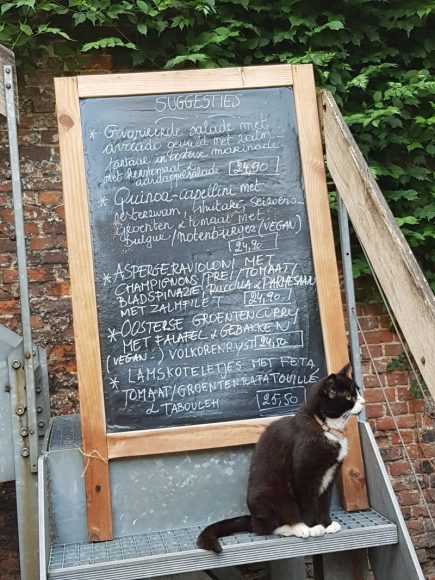 SUGGESTIES
* Gevarieerde salade met
avocado gevuld met zalm
tartaar in oosterse marinade
met kerstomaat &
aardappelsalade 24,90
* Quinoa-capellini met
oesterzwam, shiitake, seizoens
groenten & tomaat met
bulgur/notenburger (VEGAN)
24,90
* ASPERGERAVIOLONI MET
CHAMPIGNONS/PREI/TOMAAT/
BLADSPINAZIE/RUCOLA & PARMESAN
MET ZALMFILET 24,90
* OOSTERSE GROENTENCURRY
MET FALAFEL & GEBAKKEN
(VEGAN) VOLKORENRYST 24,50
* LAMSKOTELETJES MET FETA,
TOMAAT/GROENTENRATATOUILLE
& TABOULEH 25,50